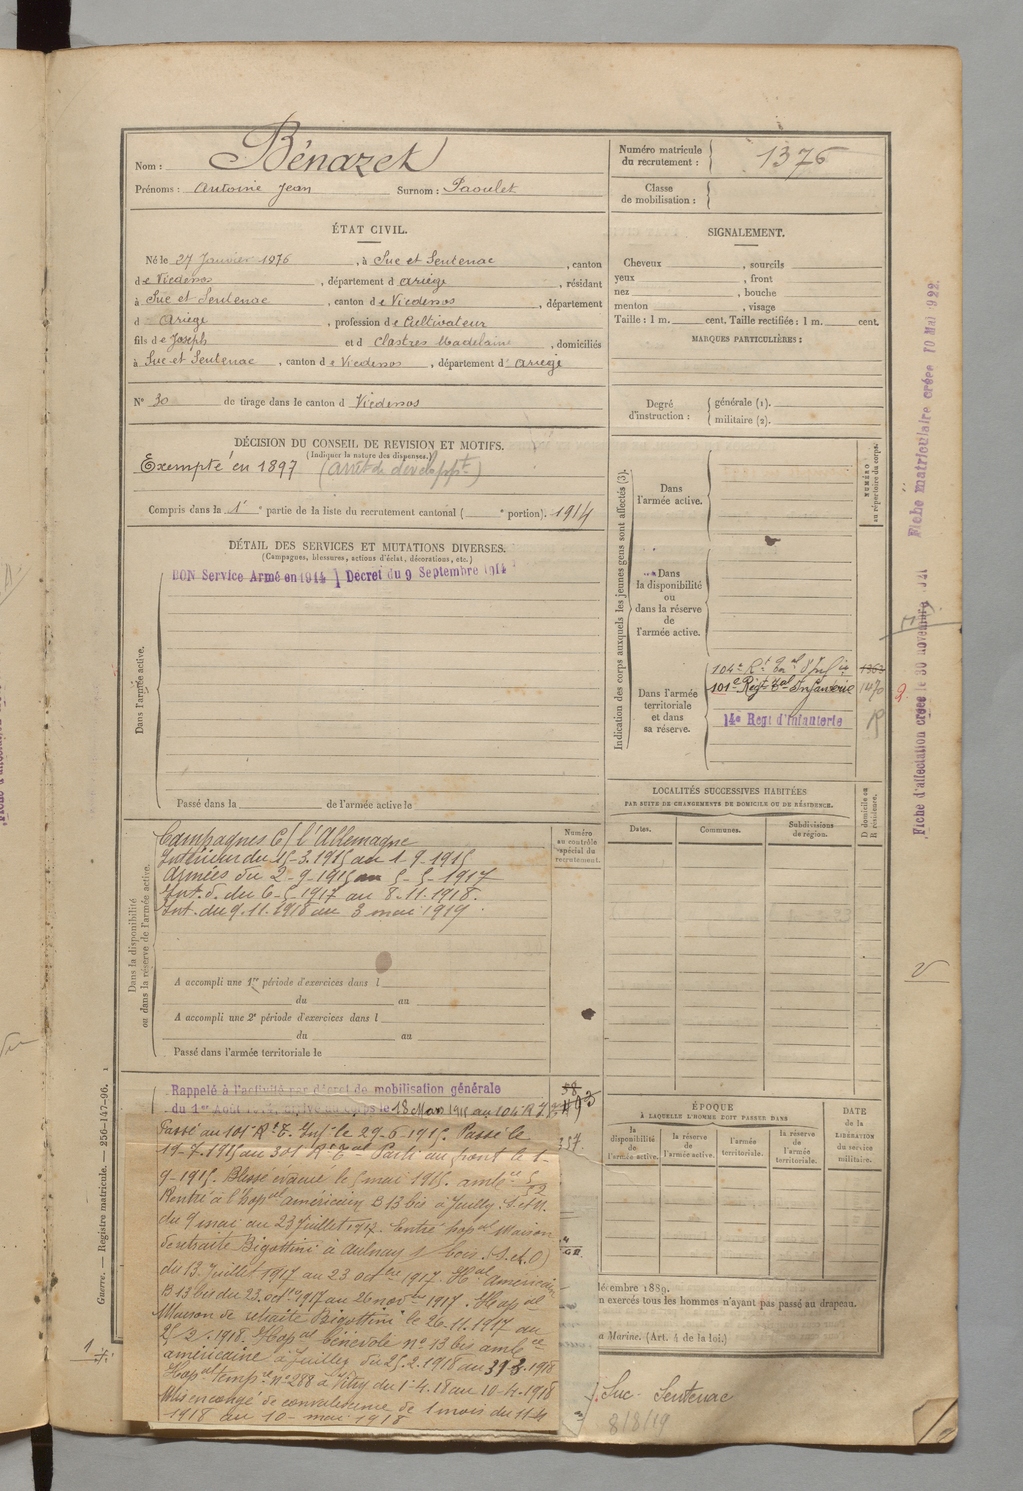 Nom : Bénazet
Prénoms : Antoine Jean Surnom : Paoulet
Numéro matricule du recrutement : 1376
Classe de mobilisation :
ÉTAT CIVIL.
Né le 27 Janvier 1876, à Suc et Sentenac, canton
de Vicdessos, département d Ariège, résidant
à Suc et Sentenac, canton de Vicdessos, département
d Ariège, profession de Cultivateur
fils de Joseph et d Clastres Madelaine, domiciliés
à Suc et Sentenac, canton de Vicdessos, département d'Ariège
N° 30 de tirage dans le canton d Vicdessos
SIGNALEMENT.
Cheveux , sourcils
yeux , front
nez , bouche
menton , visage
Taille : 1 m. cent. Taille rectifiée : 1 m. cent.
MARQUES PARTICULIÈRES :
Degré d'instruction : générale (1).
militaire (2).
DÉCISION DU CONSEIL DE REVISION ET MOTIFS.
(Indiquer la nature des dispenses.)
Exempté en 1897 (arrêt de développt)
Compris dans la 1e partie de la liste du recrutement cantonal ( e portion). 1914
DÉTAIL DES SERVICES ET MUTATIONS DIVERSES.
(Campagnes, blessures, actions d'éclat, décorations, etc.)
BON Service Armé en 1914 Décret du 9 Septembre 1914
Dans l'armée active.
Passé dans la de l'armée active le
Indication des corps auxquels les jeunes gens sont affectés (3).
NUMÉRO au répertoire du corps.
Dans l'armée active.
Dans la disponibilité ou dans la réserve de l'armée active.
Dans l'armée territoriale et dans sa réserve.
104e Rt Tal d'Infie 1363
101e Régt Tal Infanterie 1470
14e Regt d'Infanterie
LOCALITÉS SUCCESSIVES HABITÉES
PAR SUITE DE CHANGEMENTS DE DOMICILE OU DE RÉSIDENCE.
D domicile ou R résidence.
Dates. Communes. Subdivisions de région.
Dans la disponibilité ou dans la réserve de l'armée active.
Numéro au contrôle spécial du recrutement.
Campagnes C/ l'Allemagne
Intérieur du 15-3.1915 au 1-9-1915
Armées du 2-9-1915 au 5-5-1917
Int. d. du 6-5-1917 au 8.11.1918.
Int. du 9.11.1918 au 3 mai 1919
A accompli une 1re période d'exercices dans l
du au
A accompli une 2e période d'exercices dans l
du au
Passé dans l'armée territoriale le
Rappelé à l'activité par décret de mobilisation générale
du 1er Août 1914, arrivé au corps le 18 Mars 1915 au 104 R T
Passé au 101e Rt T. Infie le 29-6-1915. Passé le
19-7-1915 au 301 Rt Tal Parti au front le 1-
9-1915. Blessé évacué le 5 mai 1915. ambce 5/52
Rentré à l'hopal américain B 13 bis à Juilly. S. et M.
du 9 mai au 23 juillet 1917. Entré hopal Maison
de retraite Bigottini à Aulnay s/ bois (S. et O)
du 13 Juillet 1917 au 23 octbre 1917. Hal américain
B 13 bis du 23 octre 1917 au 26 novbre 1917. Hopal
Maison de retraite Bigottini le 26.11.1917 au
25-2-1918. Hopal bénévole n° 13 bis ambce
américaine à Juilly du 25.2.1918 au 31 3.1918
Hopal tempre n° 288 à Vitry du 1-4.18 au 10-4-1918
Mis en congé de convalescence de 1 mois du 11-4
1918 au 10-mai 1918
ÉPOQUE
À LAQUELLE L'HOMME DOIT PASSER DANS
la disponibilité de l'armée active. la réserve de l'armée active. l'armée territoriale. la réserve de l'armée territoriale.
DATE de la LIBÉRATION du service militaire.
décembre 1889.
n exercés tous les hommes n'ayant pas passé au drapeau.
a Marine. (Art. 4 de la loi.)
Suc-Sentenac
8/8/19
Guerre. — Registre matricule. — 256-147-96.
Fiche d'affectation créée le 30 novembre 1921
Fiche matriculaire créée 10 Mai 1922.